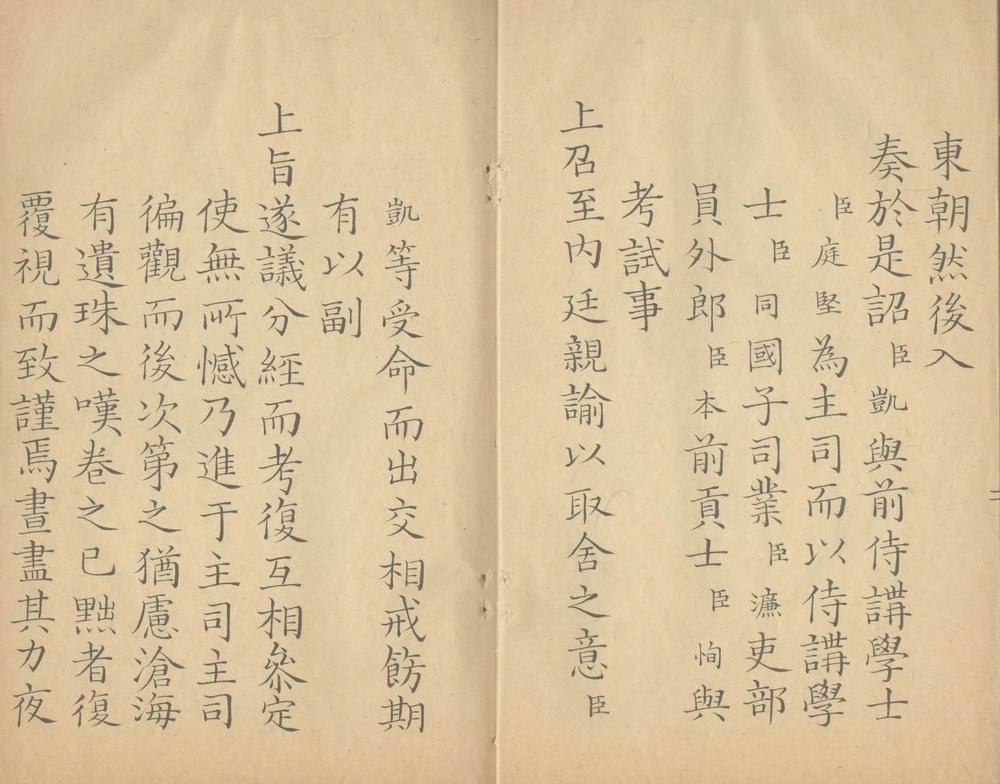 東朝然後入
奏於是詔臣凱與前侍講學士
臣庭堅為主司而以侍講學
士臣同國子司業臣濂吏部
員外郎臣本前貢士臣恂與
考試事
上召至内廷親諭以取舍之意臣
凱等受命而出交相戒飭期
有以副
上旨遂議分經而考復互相叅定
使無所憾乃進于主司主司
徧觀而後次第之猶慮滄海
有遺珠之嘆卷之已黜者復
覆視而致謹焉晝盡其力夜